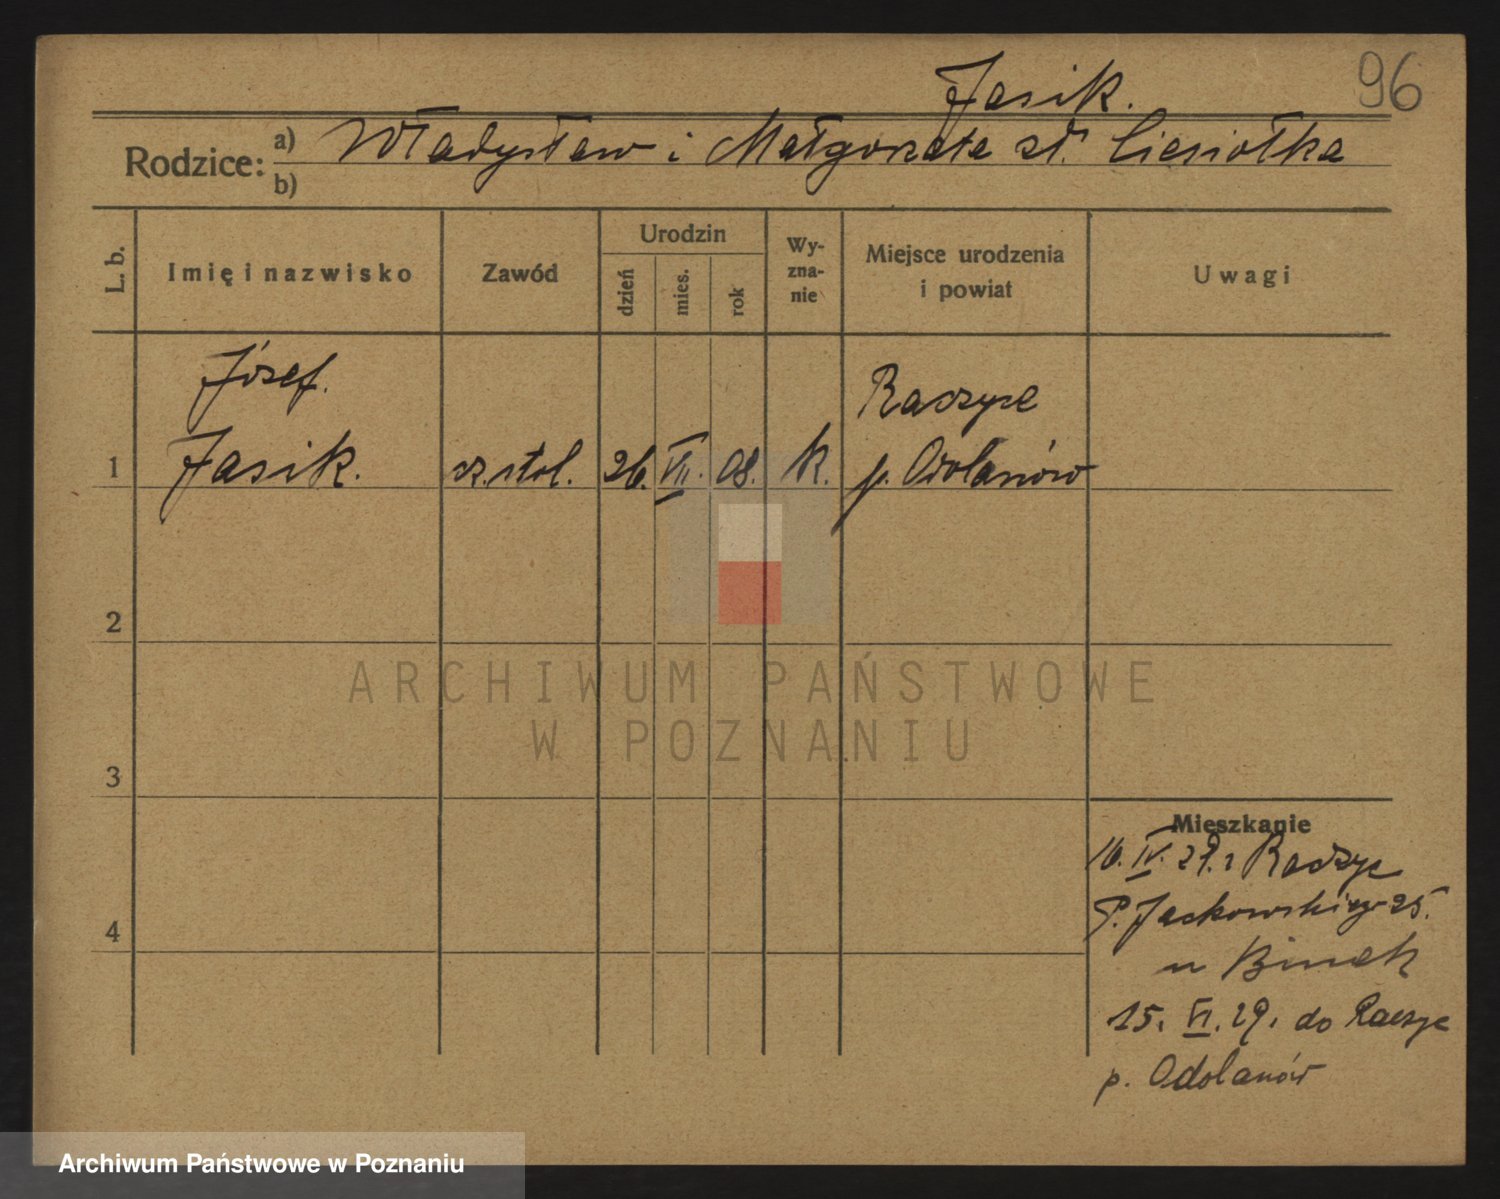 96
Jasik.
Rodzice: a) Władysław i Małgorzata zd. Ciesiołka
b)
L. b. Imię i nazwisko Zawód Urodzin dzień mies. rok Wy-zna-nie Miejsce urodzenia i powiat Uwagi
Józef. Raszyce
1 Jasik. cz. stol. 26. VII. 08. k. p. Odolanów
2
ARCHIWUM PAŃSTWOWE
W POZNANIU
3
Mieszkanie
16. IV. 29. z Raszyc
P. Jackowskiego 25.
4
u Binek
15. VI. 29. do Raszyc
p. Odolanów
Archiwum Państwowe w Poznaniu